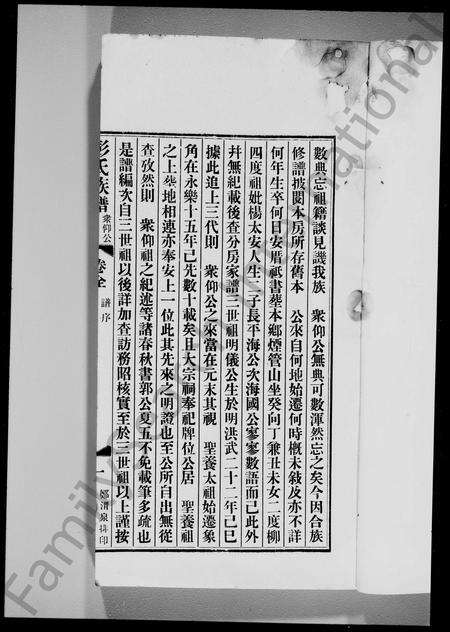 數典忘祖籍談見譏我族 衆仰公無典可數渾然忘之矣今因合族
修譜披閱本房所存舊本 公來自何地始遷何時概未敍及亦不詳
何年生卒何日安厝祇書塟本鄉煙管山坐癸向丁兼丑未女二度柳
四度祖妣楊太安人生二子長平海公次海國公寥寥數語而已此外
并無紀載後查分房家譜三世祖明儀公生於明洪武二十二年己巳
據此追上三代則 衆仰公之來當在元末其視 聖養太祖始遷象
角在永樂十五年已先數十載矣且大宗祠奉祀牌位公居 聖養祖
之上塋地相連亦奉安上一位此其先來之明證也至公所自出無從
查攷然則 衆仰祖之紀述等諸春秋書郭公夏五不免載筆多疏也
是譜編次自三世祖以後詳加查訪務昭核實至於三世祖以上謹按
彭氏族譜 衆仰公 卷全 譜序 一 鄭清泉排印
FamilySearch International